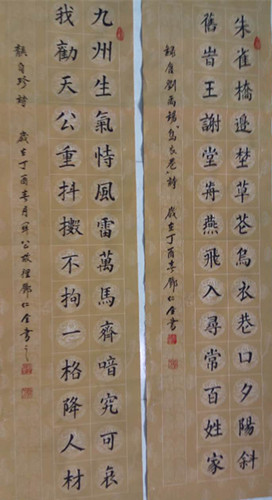 朱雀橋邊埜草花烏衣巷口夕陽斜
舊旹王謝堂歬燕飛入尋常百姓家
錄唐劉禹錫烏衣巷詩 歲在丁酉春鄧仁全書
九州生氣恃風雷萬馬齊喑究可哀
我勸天公重抖擻不拘一格降人材
龔自珍詩 歲在丁酉春月 鄧仁全書之